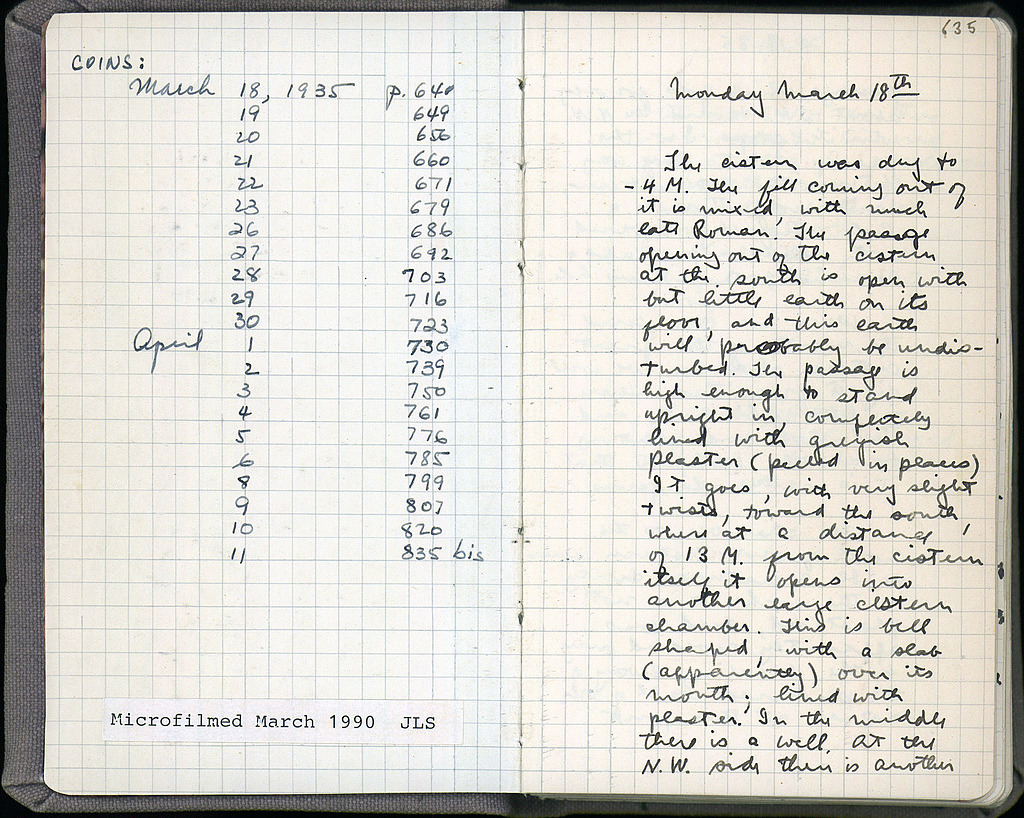 COINS:
March 18, 1935 p. 640
19 649
20 656
21 660
22 671
23 679
26 686
27 692
28 703
29 716
30 723
April 1 730
2 739
3 750
4 761
5 776
6 785
8 799
9 807
10 820
11 835 bis
Microfilmed March 1990 JLS
635
Monday March 18th
The cistern was dug to
- 4 M. The fill coming out of
it is mixed, with much
late Roman. The passage
opening out of the cistern
at the south is open with
but little earth on its
floor, and this earth
will probably be undis-
turbed. The passage is
high enough to stand
upright in, completely
lined with greyish
plaster (peeled in places)
It goes, with very slight
twists, toward the south,
where at a distance
of 13 M. from the cistern
itself it opens into
another large cistern
chamber. This is bell
shaped, with a slab
(apparently) over its
mouth; lined with
plaster. In the middle
there is a well. At the
N.W. side there is another